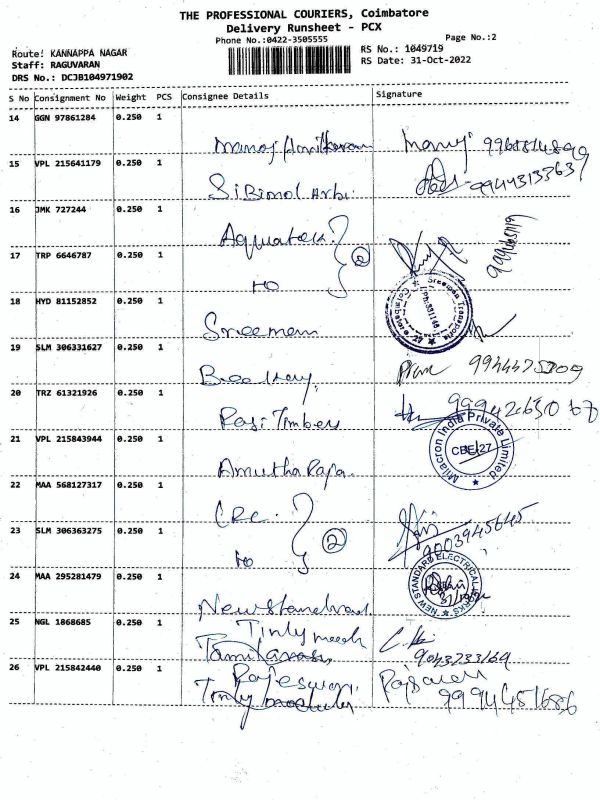 THE PROFESSIONAL COURIERS, Coimbatore
Delivery Runsheet - PCX
Phone No.:0422-3505555
Page No.:2
Route: KANNAPPA NAGAR
RS No.: 1049719
Staff: RAGUVARAN
RS Date: 31-Oct-2022
DRS No.: DCJB104971902
S No Consignment No Weight PCS Consignee Details Signature
14 GGN 97861284 0.250 1
Manoj
15 VPL 215641179 0.250 1
9944313363
16 JMK 727244 0.250 1
Aquatek
17 TRP 6646787 0.250 1
2
to
18 HYD 81152852 0.250 1
Sreeman
19 SLM 306331627 0.250 1
9944475309
20 TRZ 61321926 0.250 1
Rasi Timbers
21 VPL 215843944 0.250 1
Milacron India Private Limited
CBE-27
Amutha Raja
22 MAA 568127317 0.250 1
CRC
23 SLM 306363275 0.250 1
2
9003945645
to
24 MAA 295281479 0.250 1
NEW STANDARD ELECTRICAL WORKS
New Standard
25 NGL 1868685 0.250 1
Tinly
Tamilarasu
9043733169
26 VPL 215842440 0.250 1
Rajeswari
Tinly
9994451686